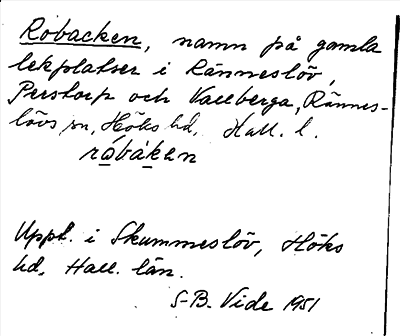 Robacken, namn på gamla
lekplatser i Ränneslöv,
Perstorp och Vallberga, Rännes-
lövs sn, Höks hd. Hall. l.
råbåken
Uppt. i Skummeslöv, Höks
hd, Hall. län.
S-B. Vide 1951